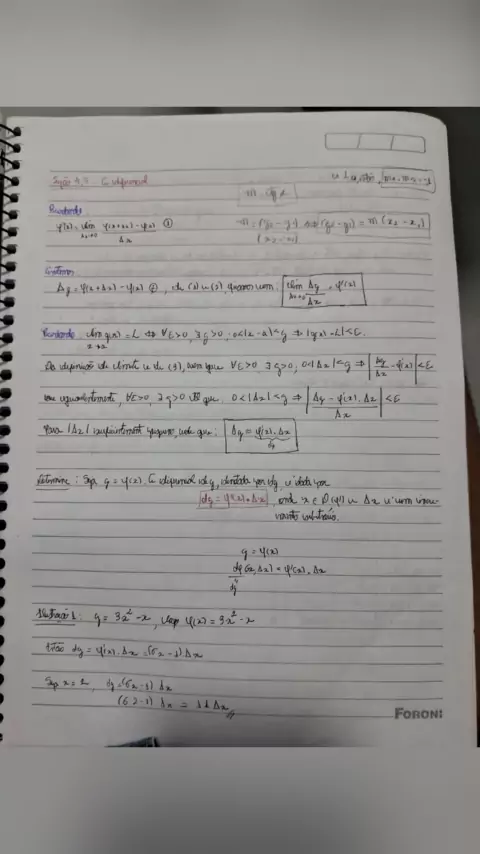 Seção 4.9 O diferencial
m. tg α
m1 . m2 = -1
Recordando
f'(x) = lim f(x+Δx) - f(x) ①
Δx→0 Δx
m = (y2 - y1) ⇔ (y2 - y1) = m (x2 - x1)
(x2 - x1)
Δy = f(x + Δx) - f(x) ②, de (1) e (2)
lim Δy = f'(x)
Δx→0 Δx
Recordando lim g(x) = L ⇔ ∀ε>0, ∃ δ>0, 0<|x - a|<δ ⇒ |g(x) - L|<ε.
x→a
Da definição de limite e de (3), tem que ∀ε>0 ∃ δ>0, 0<|Δx|<δ ⇒ |Δy/Δx - f'(x)| <ε
ou equivalentemente, ∀ε>0, ∃ δ>0 tal que 0<|Δx|<δ ⇒ |Δy - f'(x). Δx / Δx| <ε
Para |Δx| suficientemente pequeno, vale que: Δy ≈ f'(x). Δx
dy
Definição: Seja y = f(x). O diferencial dy, denotada por dy é dada por
dy = f'(x) . Δx, onde x ∈ D(f') e Δx é um incre-
mento arbitrário.
y = f(x)
dy(x, Δx) = f'(x). Δx
dy
Ilustração 1: y = 3x² - x, f(x) = 3x² - x
Então dy = f'(x). Δx = (6x - 1) Δx
Seja x = 2, dy = (6x - 1) Δx
(6.2 - 1) Δx = 11 Δx
FORONI